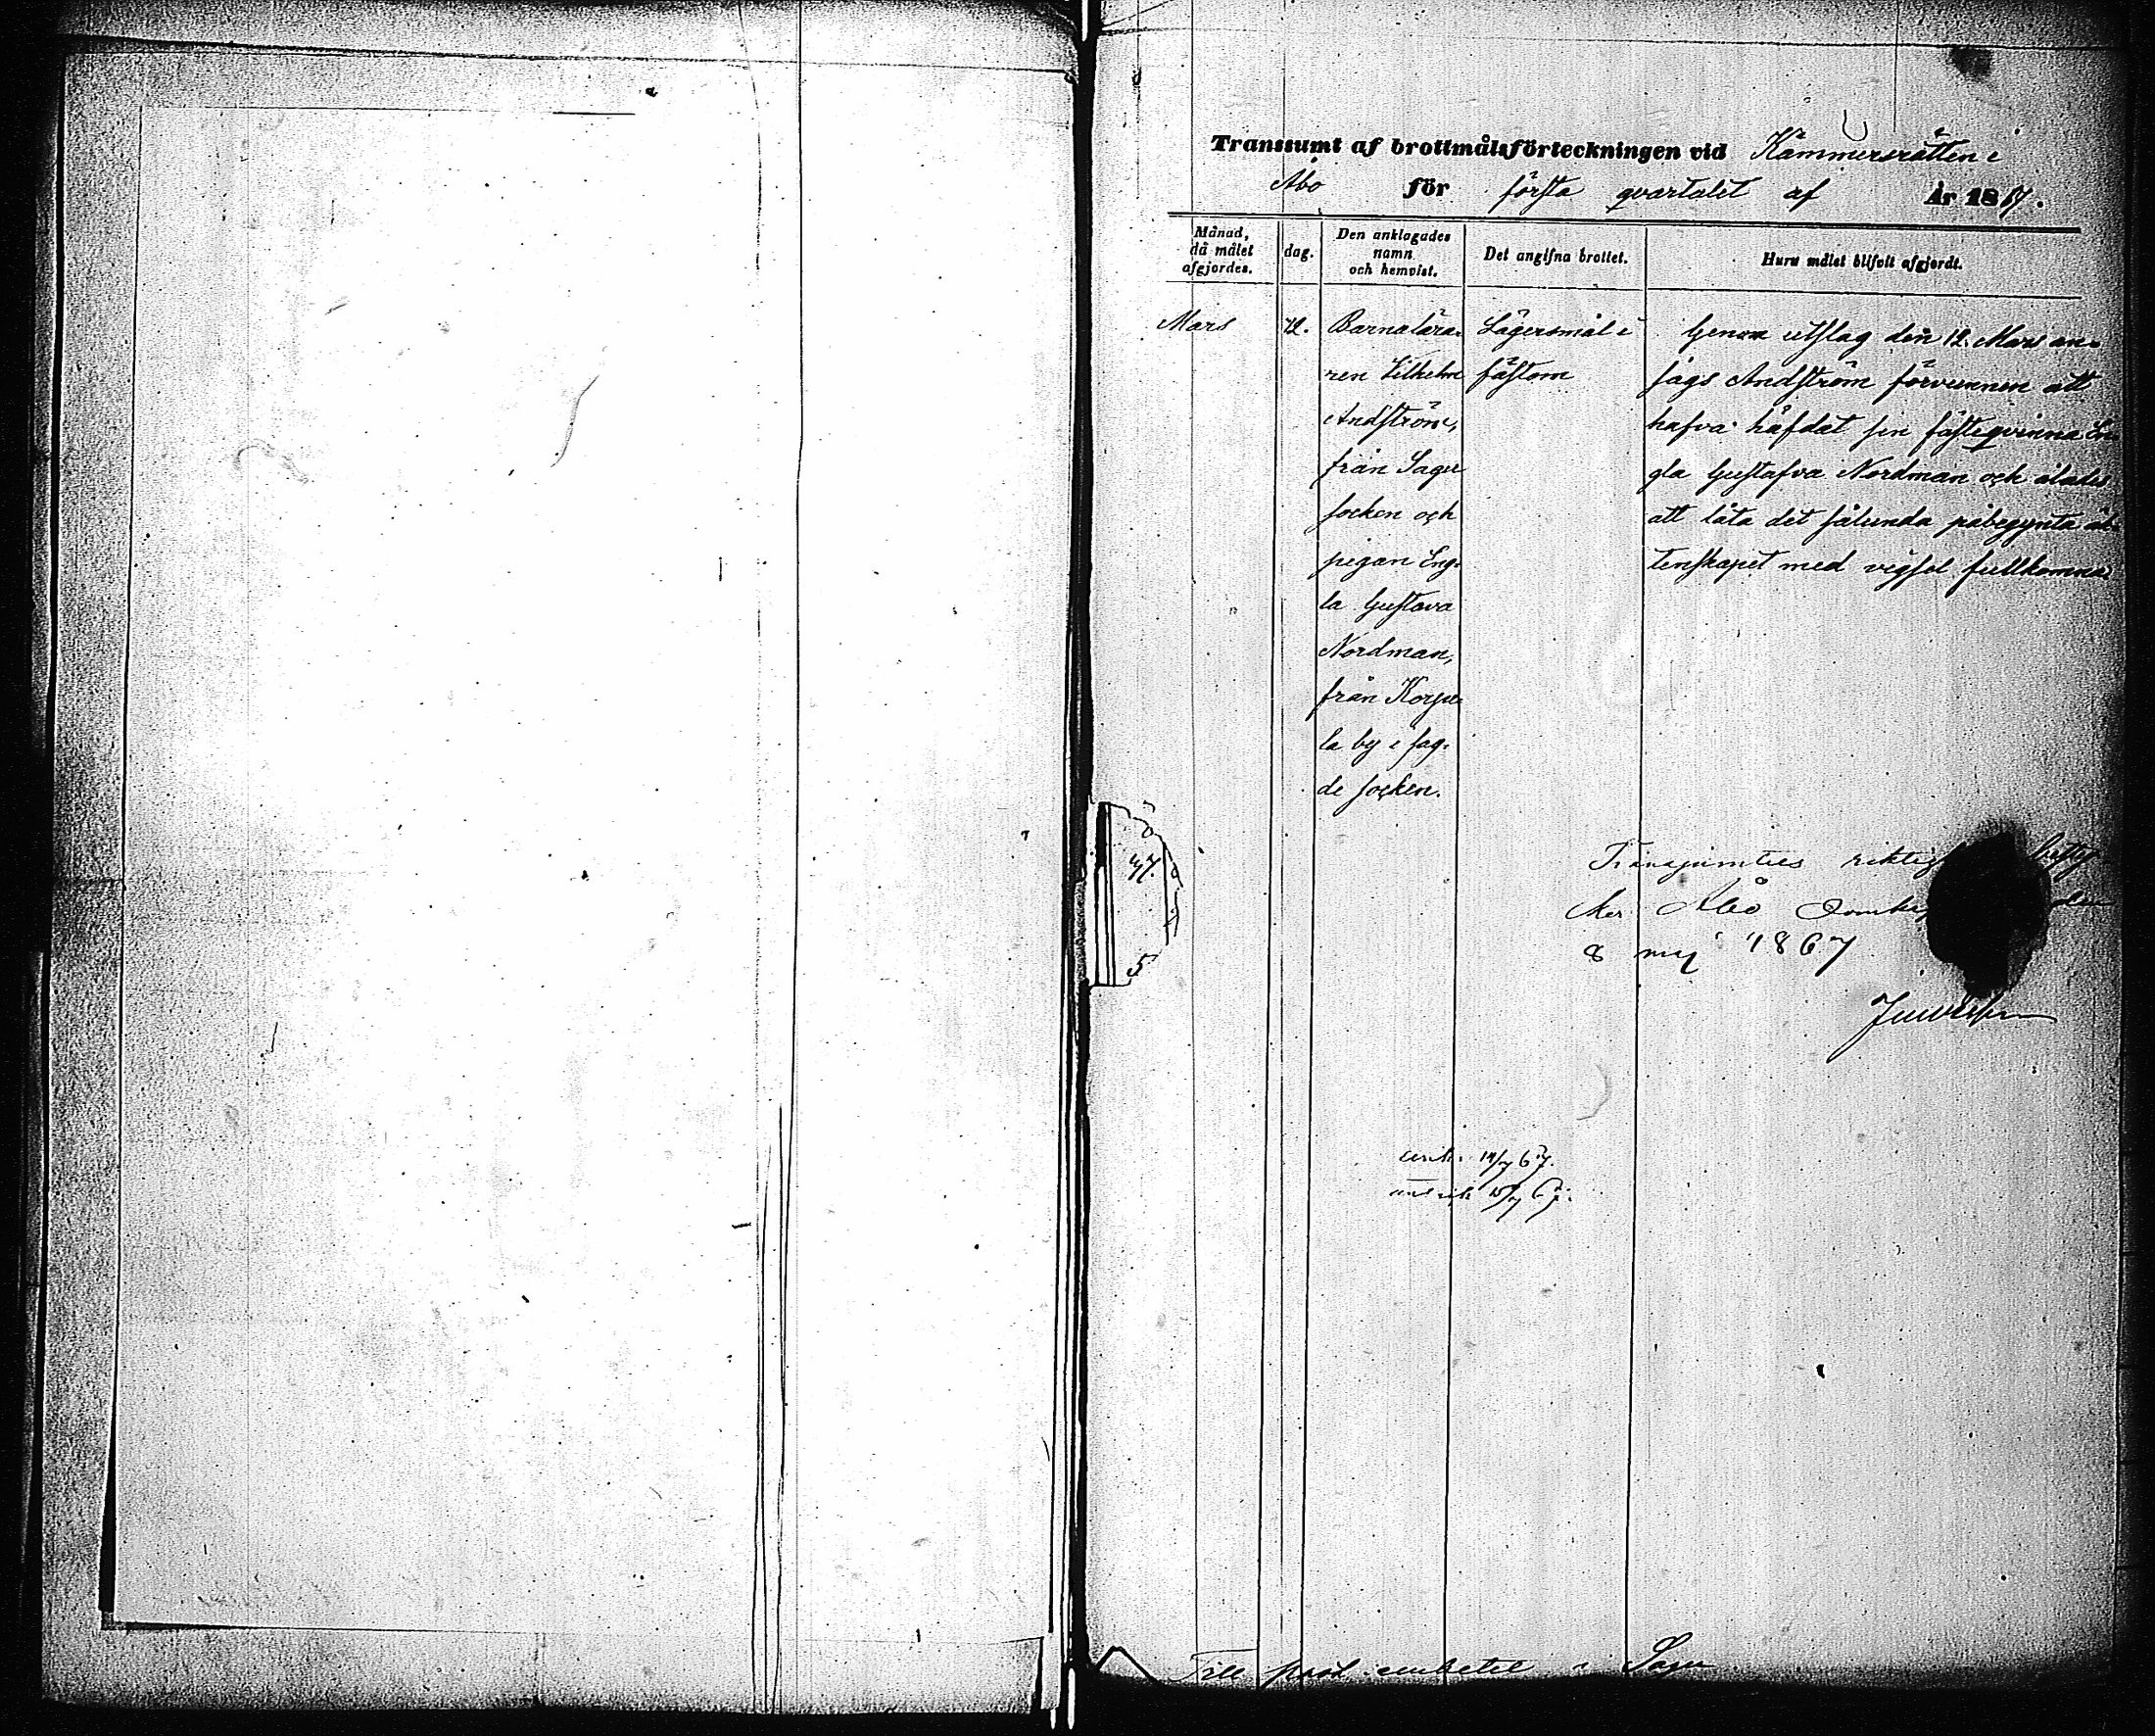 Transsumt af brottmålsförteckningen vid Kämnersrätten i
Åbo för första qvartalet af År 1867.
Månad, då målet afgjordes.
dag.
Den anklagades namn och hemvist.
Det angifna brottet.
Huru målet blifvit afgjordt.
Mars
12.
Barnalära-
ren Vilhelm
Andström,
från Sagu
socken och
pigan Eng-
la Gustava
Nordman,
från Korpu-
la by i sag-
de socken.
Lägersmål i
fästom
Genom utslag den 12. Mars an-
sågs Andström förvunnen att
hafva häfdat sin fästeqvinna En-
gla Gustafva Nordman och ålades
att låta det sålunda påbegynta äk-
tenskapet med vigsel fullkomna.
Transsumtets riktig
ker Åbo Domka den
8 maj 1867
47.
5
14/7 67.
15/7 67.
Till embetet i Sagu